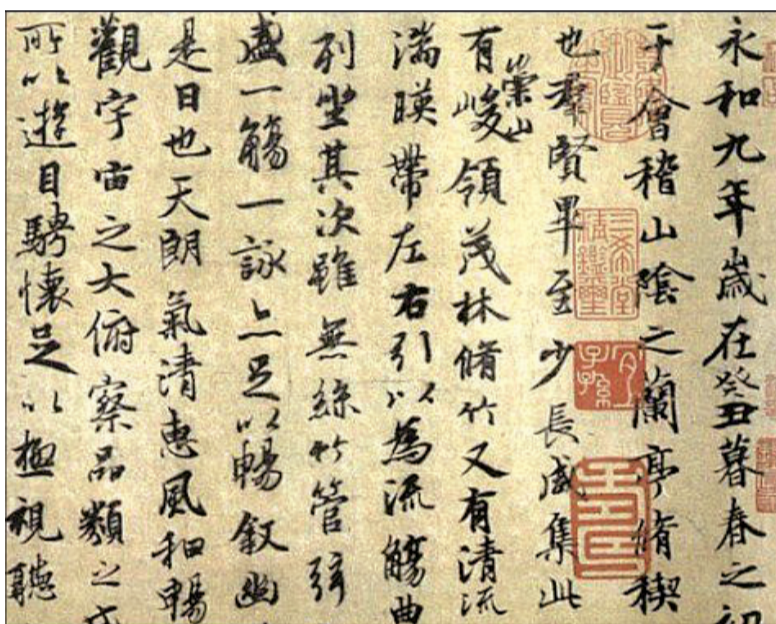 永和九年歲在癸丑暮春之初
于會稽山陰之蘭亭脩稧
也羣賢畢至少長咸集此
有崇山峻領茂林脩竹又有清流
湍暎帶左右引以為流觴曲
列坐其次雖無絲竹管弦
盛一觴一詠亦足以暢敘幽
是日也天朗氣清惠風和暢
觀宇宙之大俯察品類之盛
所以遊目騁懷足以極視聽
三希堂精鑑璽
宜子孫